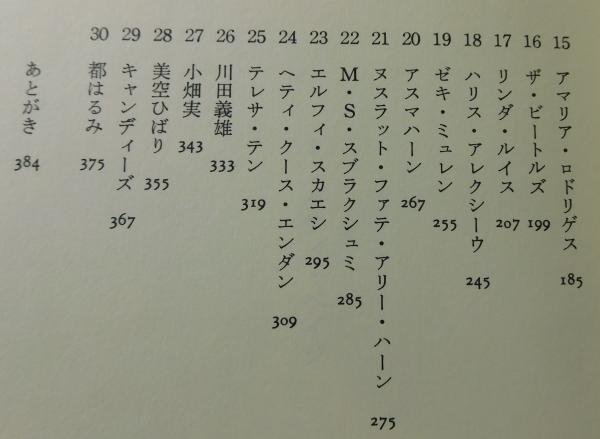 15 アマリア・ロドリゲス 185
16 ザ・ビートルズ 199
17 リンダ・ルイス 207
18 ハリス・アレクシーウ 245
19 ゼキ・ミュレン 255
20 アスマハーン 267
21 ヌスラット・ファテ・アリー・ハーン 275
22 M・S・スブラクシュミ 285
23 エルフィ・スカエシ 295
24 ヘティ・クース・エンダン 309
25 テレサ・テン 319
26 川田義雄 333
27 小畑実 343
28 美空ひばり 355
29 キャンディーズ 367
30 都はるみ 375
あとがき 384